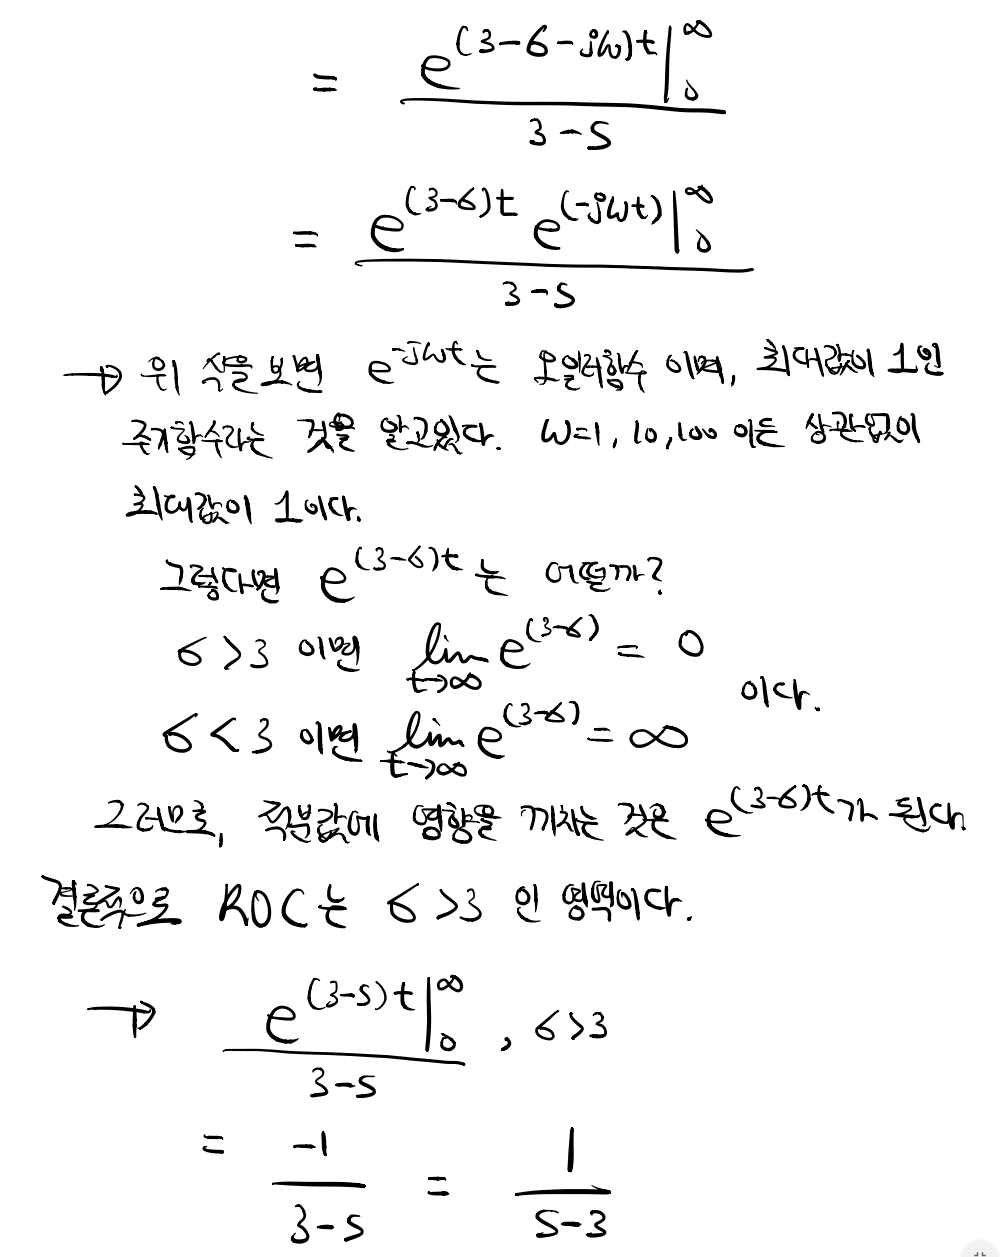 = e^(3-6-jω)t |₀^∞ / 3-s
= e^(3-6)t e^(-jωt) |₀^∞ / 3-s
→ 위 식을 보면 e^-jωt는 오일러함수 이며, 최대값이 1인
주기함수라는 것을 알고있다. ω=1, 10, 100 이든 상관없이
최대값이 1이다.
그렇다면 e^(3-6)t 는 어떨까?
6>3 이면 lim t→∞ e^(3-6) = 0
이다.
6<3 이면 lim t→∞ e^(3-6) = ∞
그러므로, 적분값에 영향을 끼치는 것은 e^(3-6)t가 된다.
결론적으로 ROC는 6>3 인 영역이다.
→ e^(3-s)t |₀^∞ / 3-s , 6>3
= -1 / 3-s = 1 / s-3